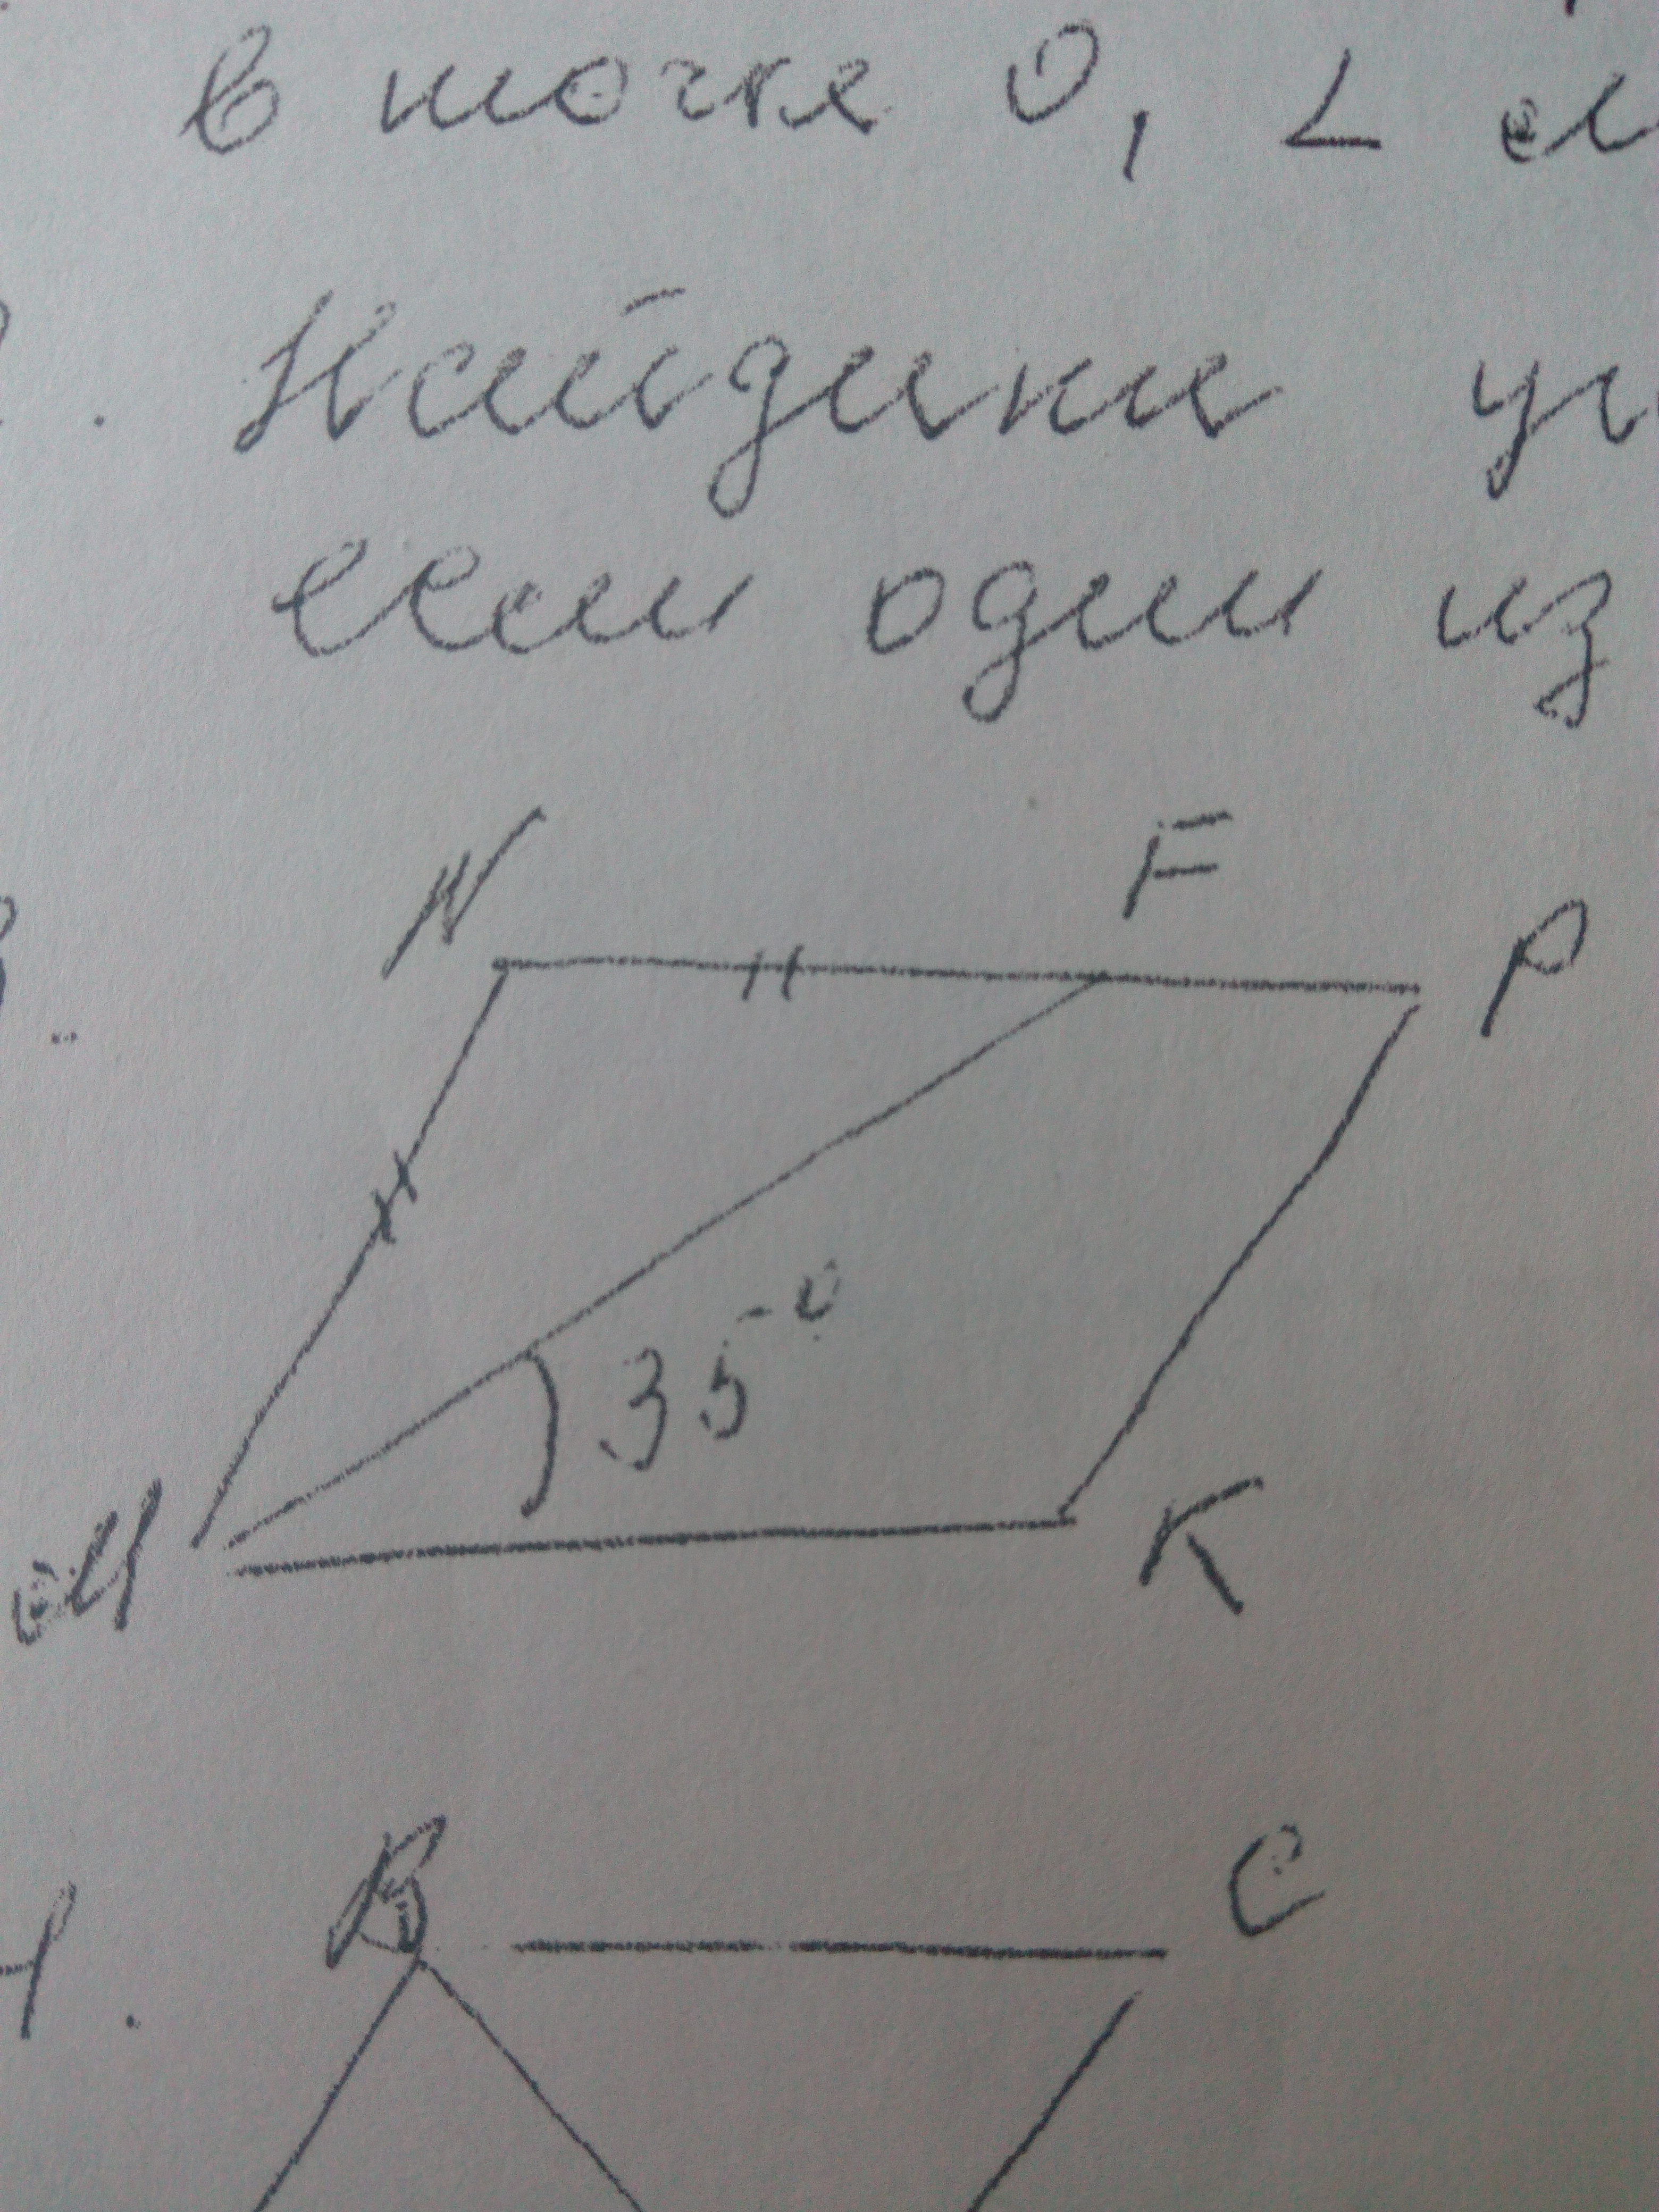 в точке О, ∠ М
. Найдите уг
если один из
N F P
35°
М K
B C
4.